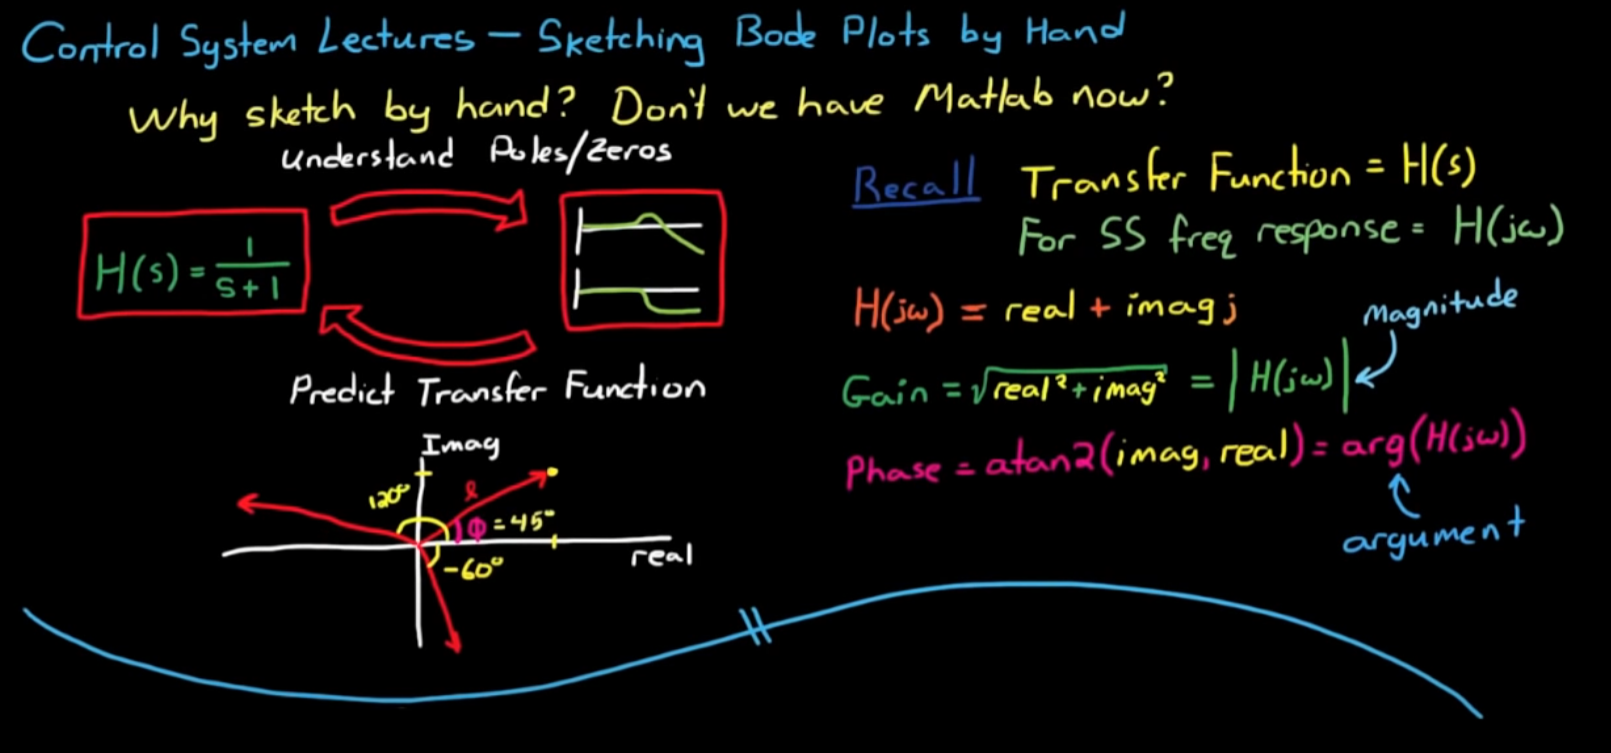 Control System Lectures – Sketching Bode Plots by Hand
Why sketch by hand? Don't we have Matlab now?
Understand Poles/Zeros
H(s) = 1/(s+1)
Predict Transfer Function
Imag
120°
l
ϕ = 45°
-60°
real
Recall Transfer Function = H(s)
For SS freq response = H(jω)
H(jω) = real + imag j
magnitude
Gain = √(real² + imag²) = |H(jω)|
Phase = atan2(imag, real) = arg(H(jω))
argument